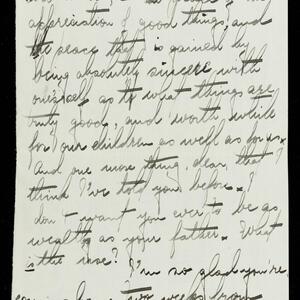 appreciation of good things, and
the peace that is gained by
being absolutely sincere with
ourself as to what things are
truly good, and worth while
for our children as well as for us.
And one more thing, dear, that I
think I've told you before. I
don't want you ever to be as
wealthy as your father. What
is the use? I'm so glad you're